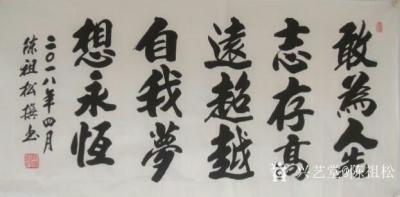 敢為人先
志存高
遠超越
自我夢
想永恆
二〇一八年四月
陈祖松撰书
兴艺堂@陈祖松